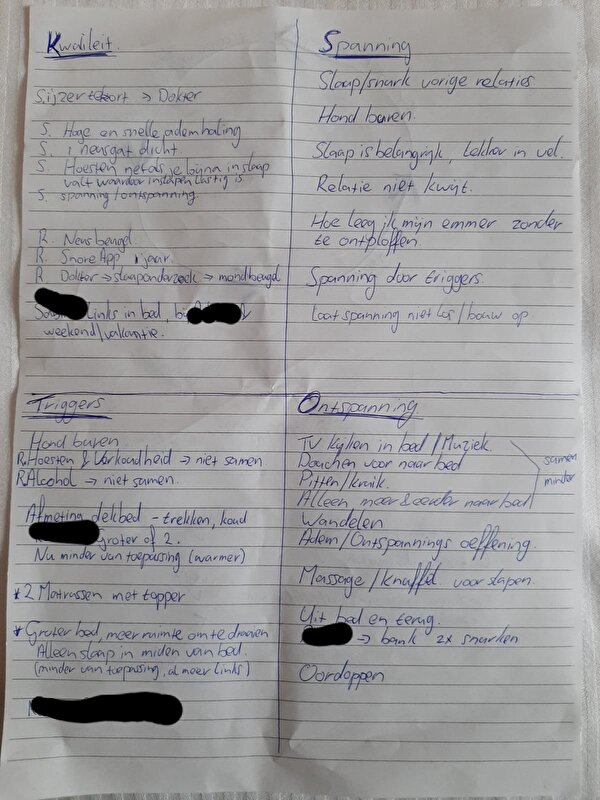 Kwaliteit.
S. ijzertekort → Dokter
S. Hoge en snelle ademhaling
S. 1 neusgat dicht
S. Hoesten net als je bijna in slaap
valt waardoor inslapen lastig is
S. spanning/ontspanning.
R. Neusbeugel
R. SnoreApp 1 jaar.
R Dokter → slaaponderzoek → mondbeugel
links in bed,
weekend/vakantie.
Spanning
Slaap/snurk vorige relaties
Hond buren.
Slaap is belangrijk, lekker in vel.
Relatie niet kwijt.
Hoe leeg ik mijn emmer zonder
te ontploffen
Spanning door triggers.
Laat spanning niet los/bouw op.
Triggers
Hond buren
R. Hoesten & Verkoudheid → niet samen.
R Alcohol → niet samen.
Afmeting dekbed - trekken, koud
Groter of 2.
Nu minder van toepassing (warmer)
* 2 Matrassen met topper
* Groter bed, meer ruimte om te draaien
Alleen slaap in miden van bed
(minder van toepassing, al meer links)
Ontspanning
TV kijken in bed/Muziek.
Douchen voor naar bed
Pitten/kruik.
Alleen meer & eerder naar bed
samen
minder
Wandelen
Adem/Ontspannings oeffening.
Massage/knuffel voor slapen.
Uit bed en terug.
→ bank 2x snurken
Oordoppen